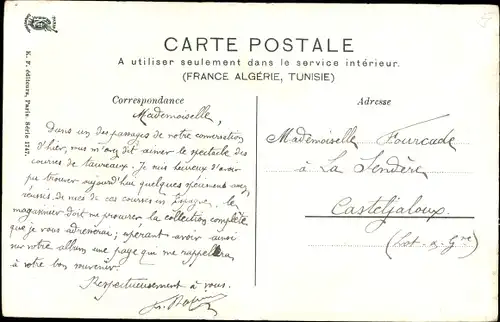 CARTE POSTALE
A utiliser seulement dans le service intérieur.
(FRANCE ALGÉRIE, TUNISIE)
Correspondance
Adresse
K. F. éditeurs, Paris. Série 1747.
Mademoiselle,
Dans un des passages de notre conversation
d'hier, vous m'avez dit aimer le spectacle des
courses de taureaux. Je suis heureux d'avoir
pu trouver aujourd'hui quelques spécimens assez
réussis de mes de cas courses en Espagne. le
magasinier doit me procurer la collection complète
que je vous adresserai ; espérant avoir ainsi
sur votre album une page qui me rappellera
à votre bon souvenir.
Respectueusement à vous.
Mademoiselle Fourcade
à La Sendère
Casteljaloux
(Lot-&-Gne)